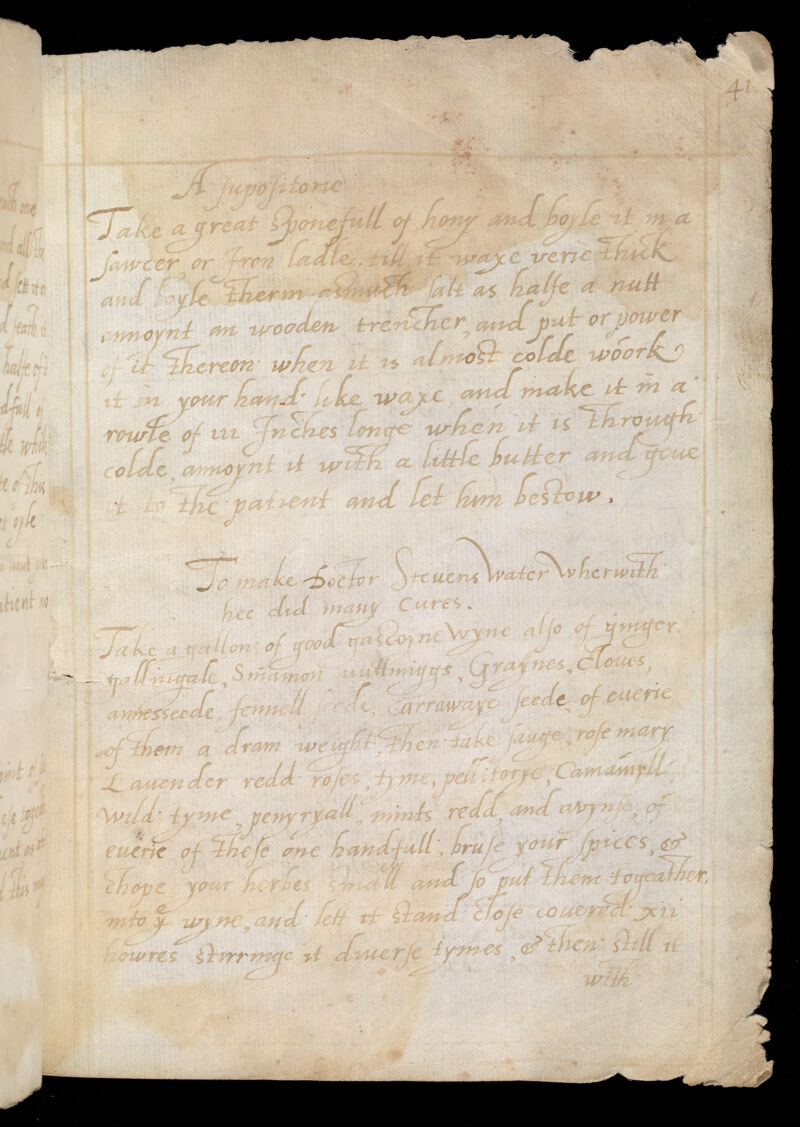 41
A supositorie
Take a great sponefull of hony and boyle it in a
sawcer, or Iron ladle, till it waxe verie thick
and boyle therin asmuch salt as halfe a nutt
annoynt an wooden trencher, and put or power
of it thereon when it is almost colde woork
it in your hand like waxe, and make it in a
rowle of iii Inches longe when it is through
colde, annoynt it with a little butter and geue
it to the patient and let him bestow.
To make Doctor Stevens water wherwith
hee did many cures.
Take a gallon of good gascoyne wyne also of ginger,
gallingale, Sinamon nuttmiggs, Graynes, cloves,
annesseede, fennell seede, Carrawaye seede, of euerie
of them a dram weight, then take sauge, rose mary
Lavender redd roses, tyme, pellitorye, Camamyll
wild tyme, penyryall, mints redd, and avynse, of
euerie of these one handfull, bruse your spices, &
chope your herbes small and so put them togeather,
into yͤ wyne, and lett it stand close couered xii
howres stirringe it diuerse tymes, & then still it
with